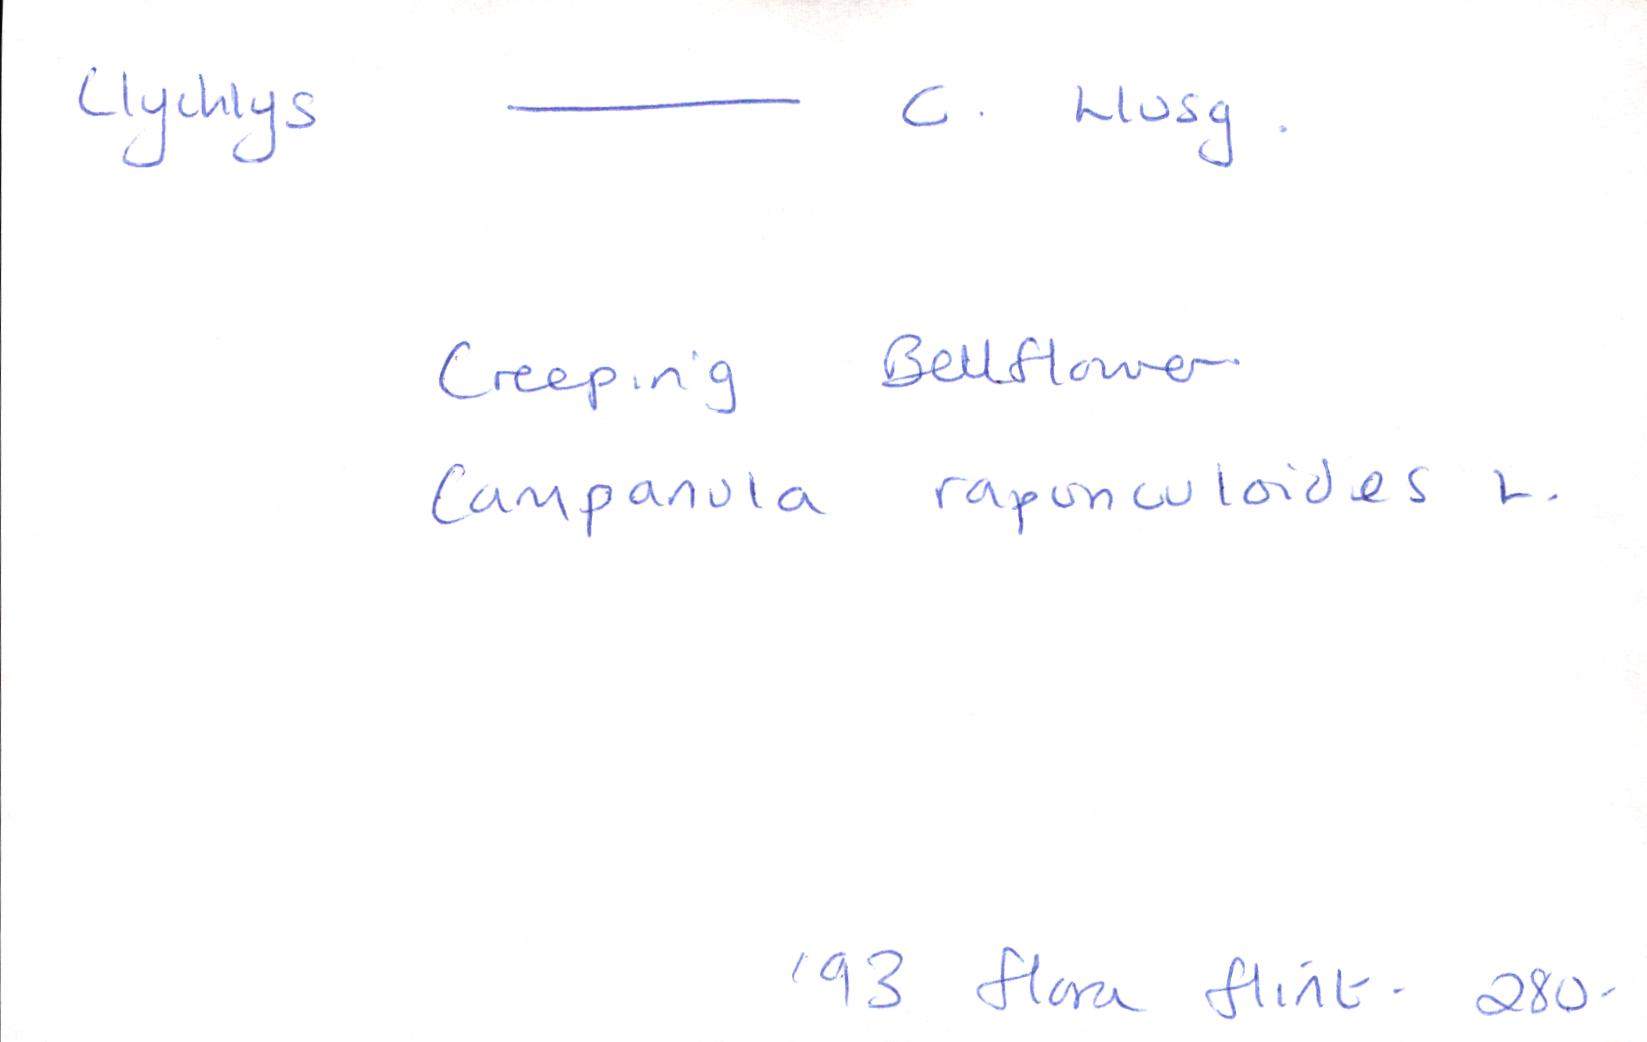 Clychlys ——— C. Llusg.
Creeping Bellflower
Campanula rapunculoides L.
'93 flora flint. 280.